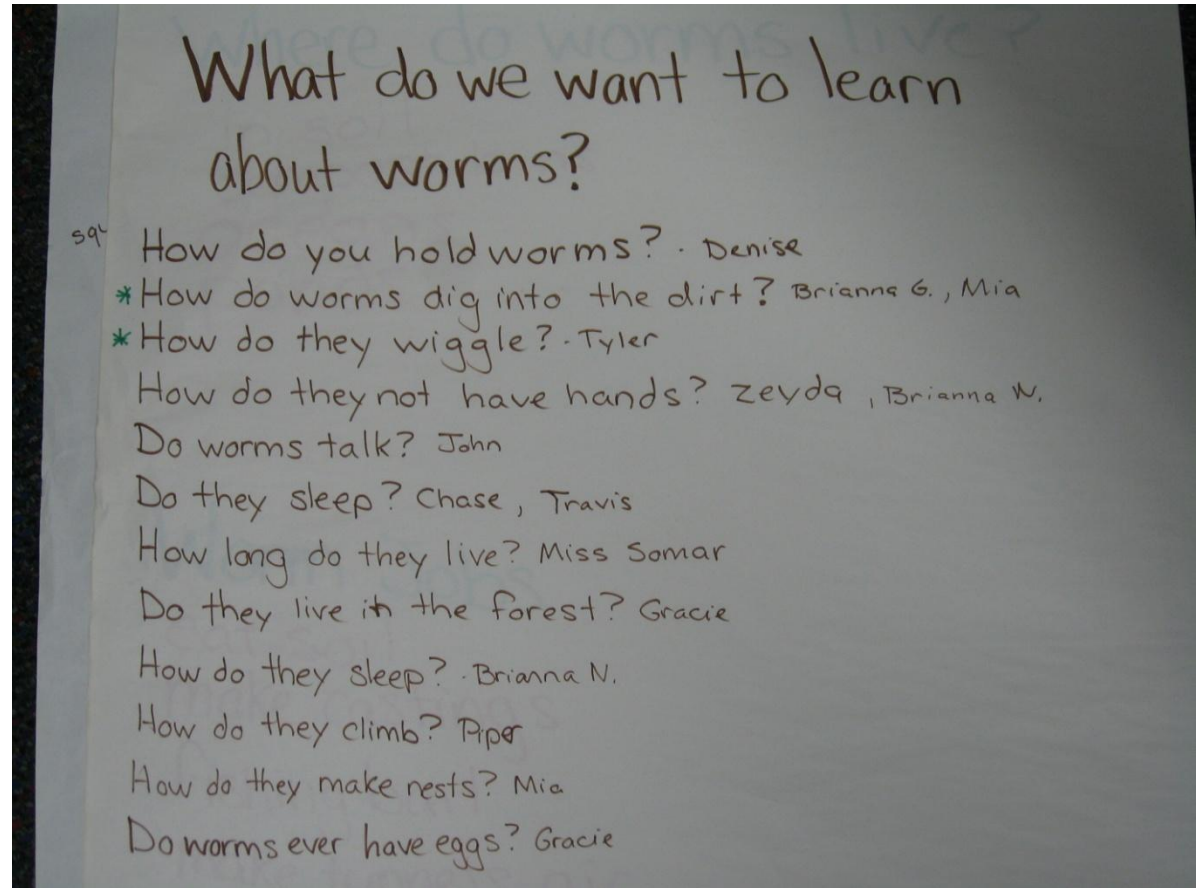 What do we want to learn
about worms?
How do you hold worms? - Denise
*How do worms dig into the dirt? Brianna G., Mia
*How do they wiggle? - Tyler
How do they not have hands? Zeyda, Brianna N.
Do worms talk? John
Do they sleep? Chase, Travis
How long do they live? Miss Somar
Do they live in the forest? Gracie
How do they sleep? - Brianna N.
How do they climb? Piper
How do they make nests? Mia
Do worms ever have eggs? Gracie